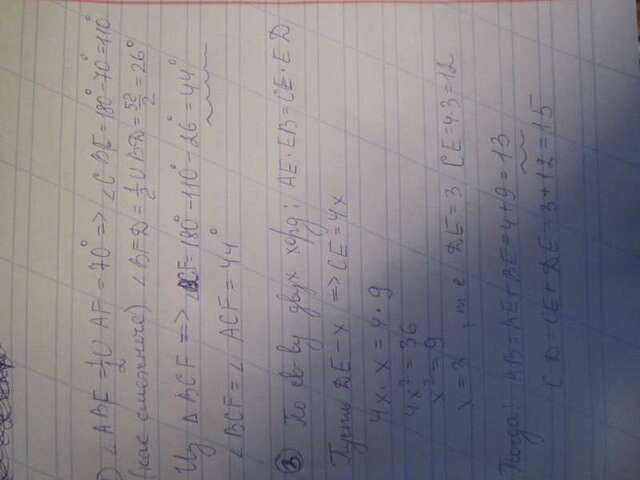 ) ∠ABF = 1/2 ∪ AF = 70° => ∠CBF = 180° - 70° = 110°
(как смежные) ∠BFD = 1/2 ∪ BD = 52/2 = 26°
Из △ BCF => ∠BCF = 180° - 110° - 26° = 44°
∠BCF = ∠ACF = 44°
③ По св-ву двух хорд: AE·EB = CE·ED
Пусть DE - x => CE = 4x
4x·x = 4·9
4x² = 36
x² = 9
x = 3, т.е. DE = 3 CE = 4·3 = 12
Тогда: AB = AE + BE = 4 + 9 = 13
CD = CE + DE = 3 + 12 = 15